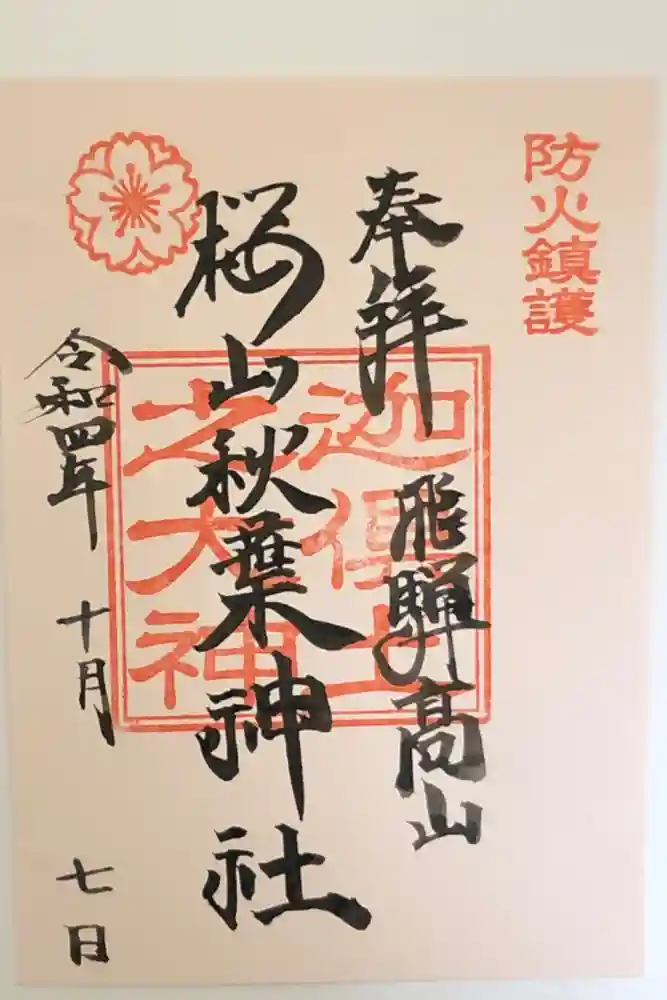 防火鎮護
奉拝
飛騨高山
迦倶土
之大神
桜山秋葉神社
令和四年十月七日